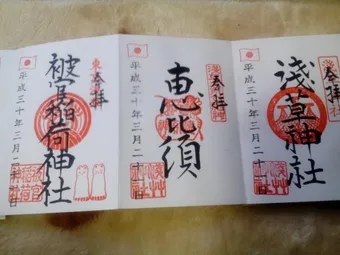 浅草神社
奉拝
平成三十年三月二十日
恵比須
奉拝
平成三十年三月二十日
被官稲荷神社
奉拝
平成三十年三月二十日